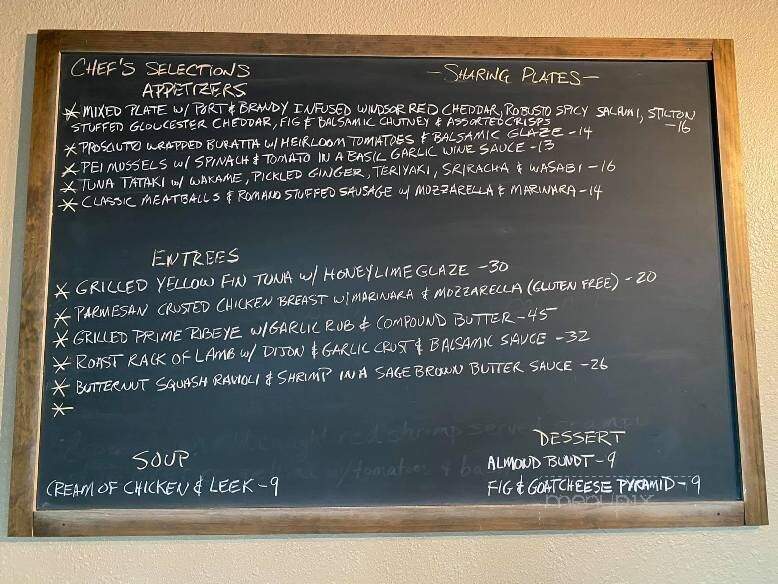 CHEF'S SELECTIONS
APPETIZERS
- SHARING PLATES -
* MIXED PLATE W/ PORT & BRANDY INFUSED WINDSOR RED CHEDDAR, ROBUSTO SPICY SALAMI, STILTON
STUFFED GLOUCESTER CHEDDAR, FIG & BALSAMIC CHUTNEY & ASSORTED CRISPS -16
* PROSCIUTO WRAPPED BURATTA W/ HEIRLOOM TOMATOES & BALSAMIC GLAZE - 14
* PEI MUSSELS W/ SPINACH & TOMATO IN A BASIL GARLIC WINE SAUCE - 13
* TUNA TATAKI W/ WAKAME, PICKLED GINGER, TERIYAKI, SRIRACHA & WASABI - 16
* CLASSIC MEATBALLS & ROMANO STUFFED SAUSAGE W/ MOZZARELLA & MARINARA - 14
ENTREES
* GRILLED YELLOW FIN TUNA W/ HONEY LIME GLAZE - 30
* PARMESAN CRUSTED CHICKEN BREAST W/ MARINARA & MOZZARELLA (GLUTEN FREE) - 20
* GRILLED PRIME RIBEYE W/ GARLIC RUB & COMPOUND BUTTER - 45
* ROAST RACK OF LAMB W/ DIJON & GARLIC CRUST & BALSAMIC SAUCE - 32
* BUTTERNUT SQUASH RAVIOLI & SHRIMP IN A SAGE BROWN BUTTER SAUCE - 26
*
SOUP
CREAM OF CHICKEN & LEEK - 9
DESSERT
ALMOND BUNDT - 9
FIG & GOAT CHEESE PYRAMID - 9
menupix